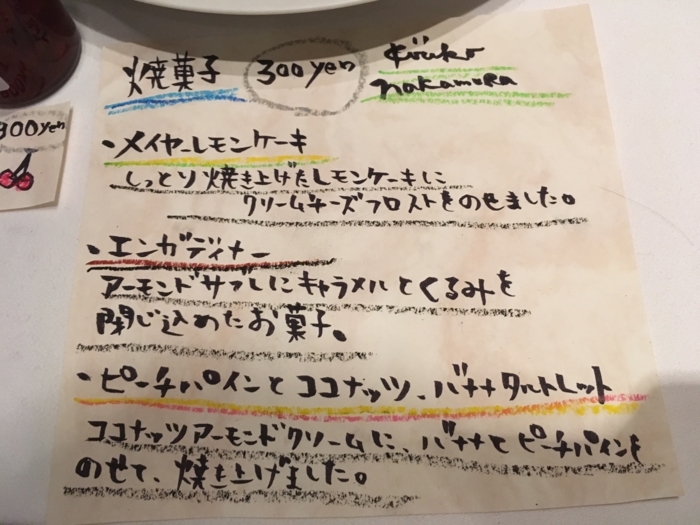 焼菓子 300yen Kyouko
nakamura
300yen
・メイヤーレモンケーキ
しっとり焼き上げたレモンケーキに
クリームチーズフロストをのせました。
・エンガディナー
アーモンドサブレにキャラメルとくるみを
閉じ込めたお菓子。
・ピーチパインとココナッツ、バナナタルトレット
ココナッツアーモンドクリームに、バナナとピーチパインを
のせて、焼き上げました。